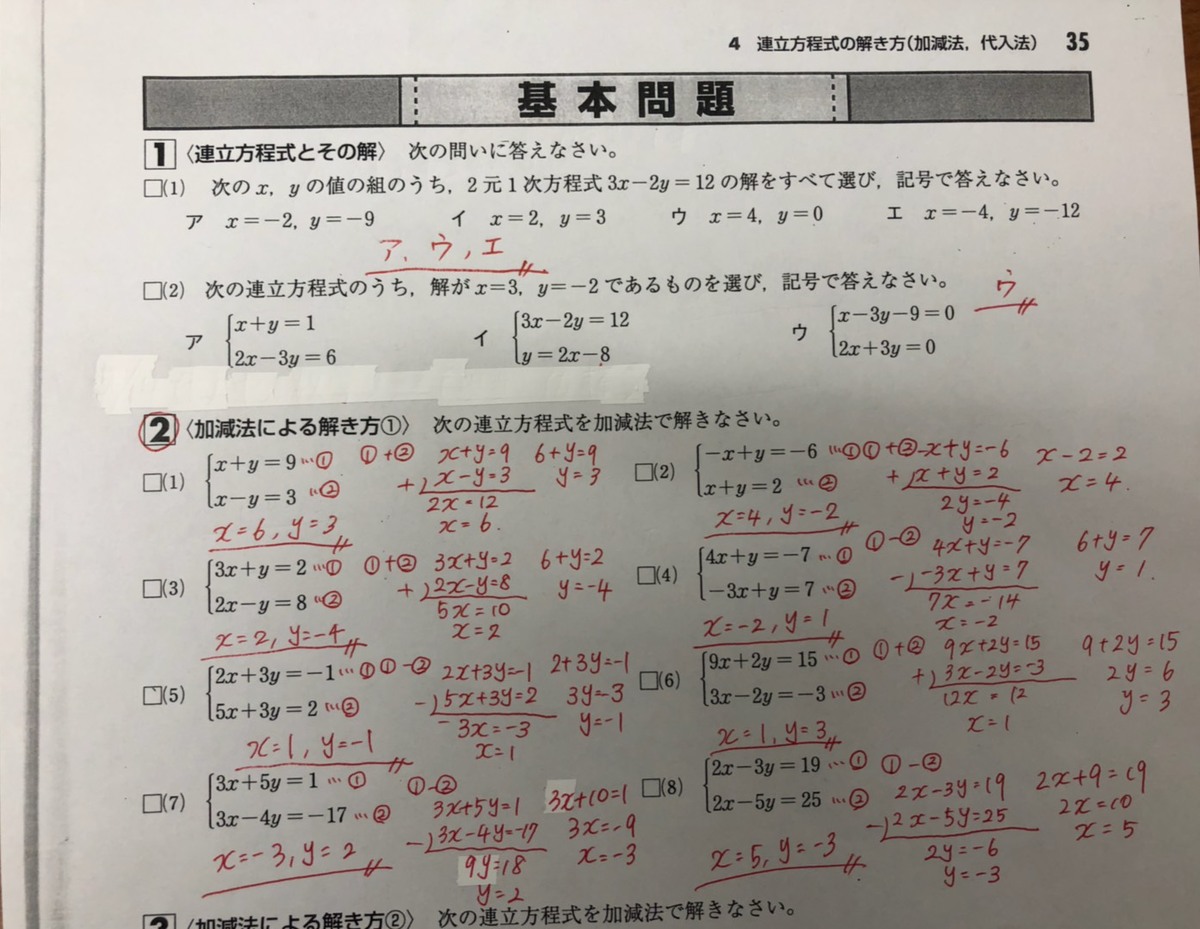 4 連立方程式の解き方(加減法,代入法) 35
基本問題
1 〈連立方程式とその解〉 次の問いに答えなさい。
□(1) 次のx,yの値の組のうち,2元1次方程式3x−2y=12の解をすべて選び,記号で答えなさい。
ア x=−2,y=−9 イ x=2,y=3 ウ x=4,y=0 エ x=−4,y=−12
ア、ウ,エ
□(2) 次の連立方程式のうち,解がx=3,y=−2であるものを選び,記号で答えなさい。
ウ
ア {x+y=1
2x−3y=6
イ {3x−2y=12
y=2x−8
ウ {x−3y−9=0
2x+3y=0
2 〈加減法による解き方①〉 次の連立方程式を加減法で解きなさい。
□(1) {x+y=9 …①
x−y=3 …②
①+② x+y=9
+)x−y=3
2x=12
x=6.
6+y=9
y=3
x=6,y=3
□(2) {−x+y=−6 …①
x+y=2 …②
①+② −x+y=−6
+)x+y=2
2y=−4
y=−2
x−2=2
x=4.
x=4,y=−2
□(3) {3x+y=2 …①
2x−y=8 …②
①+② 3x+y=2
+)2x−y=8
5x=10
x=2
6+y=2
y=−4
x=2,y=−4
□(4) {4x+y=−7 …①
−3x+y=7 …②
①−② 4x+y=−7
−)−3x+y=7
7x=−14
x=−2
6+y=7
y=1.
x=−2,y=1
□(5) {2x+3y=−1 …①
5x+3y=2 …②
①−② 2x+3y=−1
−)5x+3y=2
−3x=−3
x=1
2+3y=−1
3y=−3
y=−1
x=1,y=−1
□(6) {9x+2y=15 …①
3x−2y=−3 …②
①+② 9x+2y=15
+)3x−2y=−3
12x=12
x=1
9+2y=15
2y=6
y=3
x=1,y=3
□(7) {3x+5y=1 …①
3x−4y=−17 …②
①−②
3x+5y=1
−)3x−4y=−17
9y=18
y=2
3x+10=1
3x=−9
x=−3
x=−3,y=2
□(8) {2x−3y=19 …①
2x−5y=25 …②
①−②
2x−3y=19
−)2x−5y=25
2y=−6
y=−3
2x+9=19
2x=10
x=5
x=5,y=−3
3 〈加減法による解き方②〉 次の連立方程式を加減法で解きなさい。